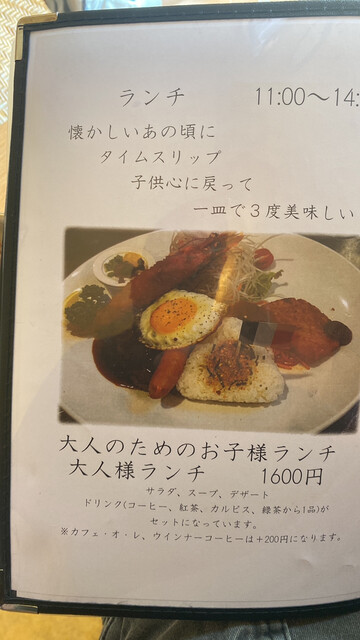 ランチ 11:00～14:
懐かしいあの頃に
タイムスリップ
子供心に戻って
一皿で３度美味しい
大人のためのお子様ランチ
大人様ランチ 1600円
サラダ、スープ、デザート
ドリンク(コーヒー、紅茶、カルピス、緑茶から1品)が
セットになっています。
※カフェ・オ・レ、ウインナーコーヒーは＋200円になります。